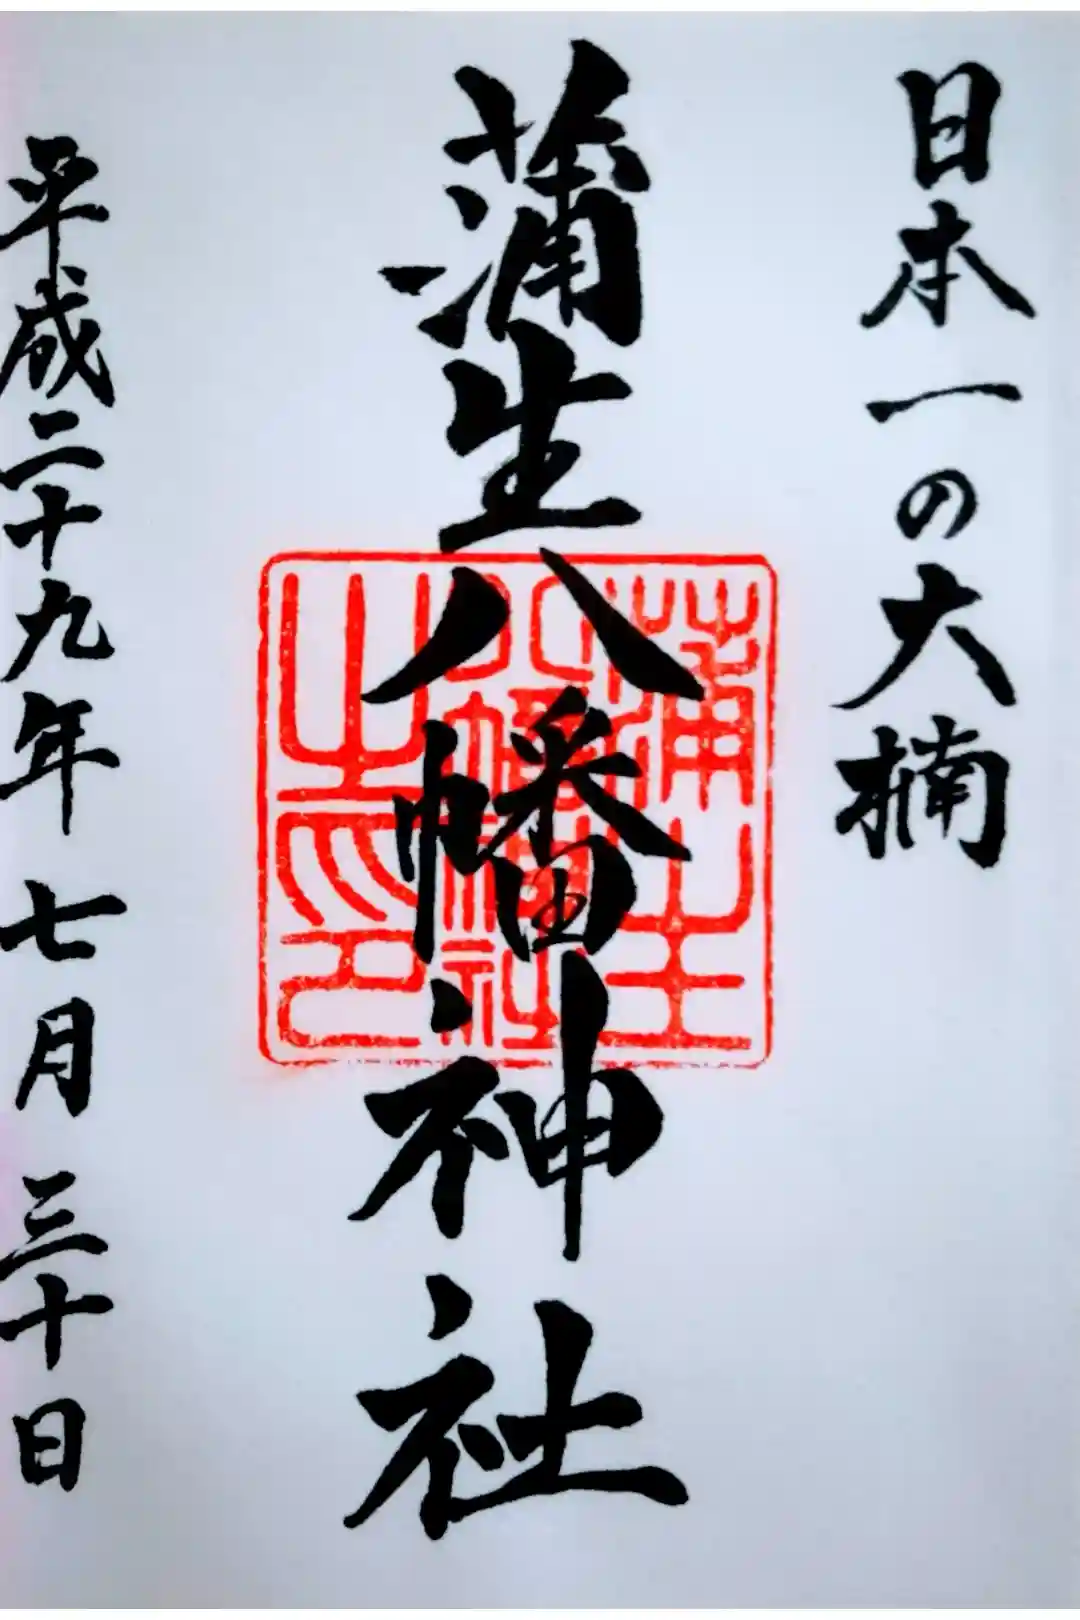 日本一の大楠
蒲生八幡神社
蒲生
八幡神社
之印
平成二十九年七月三十日